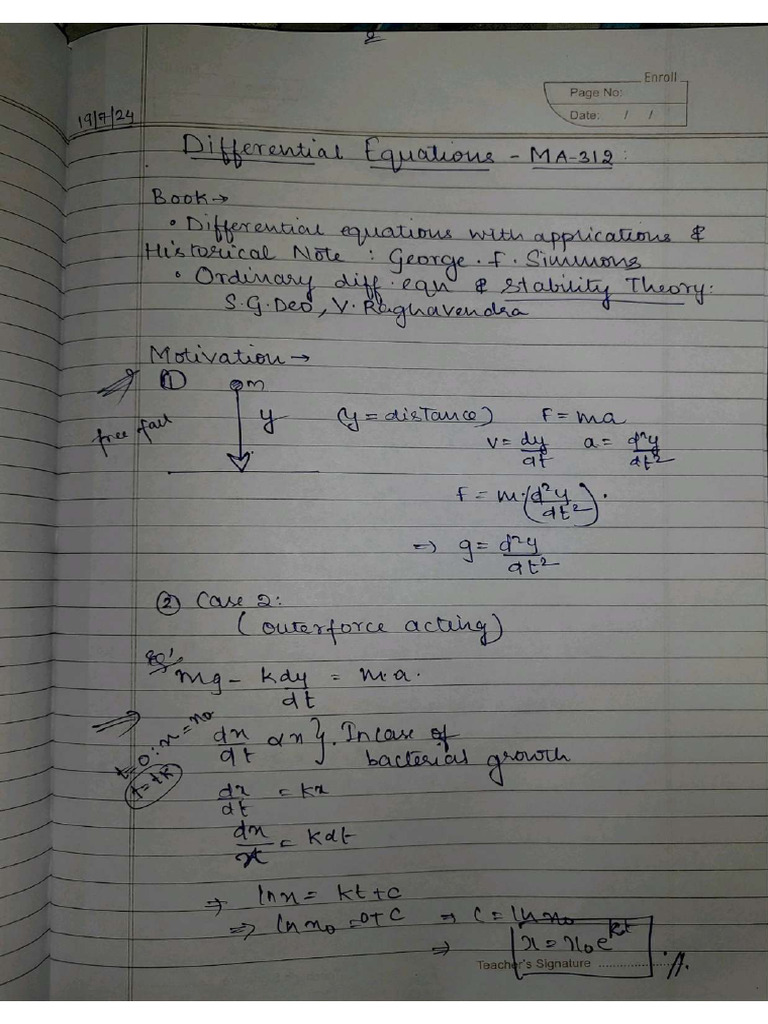 Enroll
Page No:
Date: / /
19/7/24
Differential Equations - MA-312:
Book →
• Differential equations with applications &
Historical Note : George. F. Simmons
• Ordinary diff. eqn & stability Theory:
S.G.Deo, V. Raghavendra
Motivation →
① m
free fall
y (y = distance) F = ma
v = dy/dt a = d²y/dt²
F = m·(d²y/dt²).
⇒ g = d²y/dt²
② Case 2:
(outerforce acting)
Eg'
mg - kdy/dt = m.a.
t=0: x = x₀
t = tk
dx/dt ∝ x}. In case of
bacterial growth
dx/dt = kx
dx/x = kdt
⇒ ln x = kt + c
⇒ ln x₀ = 0 + c ⇒ c = ln x₀
⇒ x = x₀e^kt
Teacher's Signature ..................